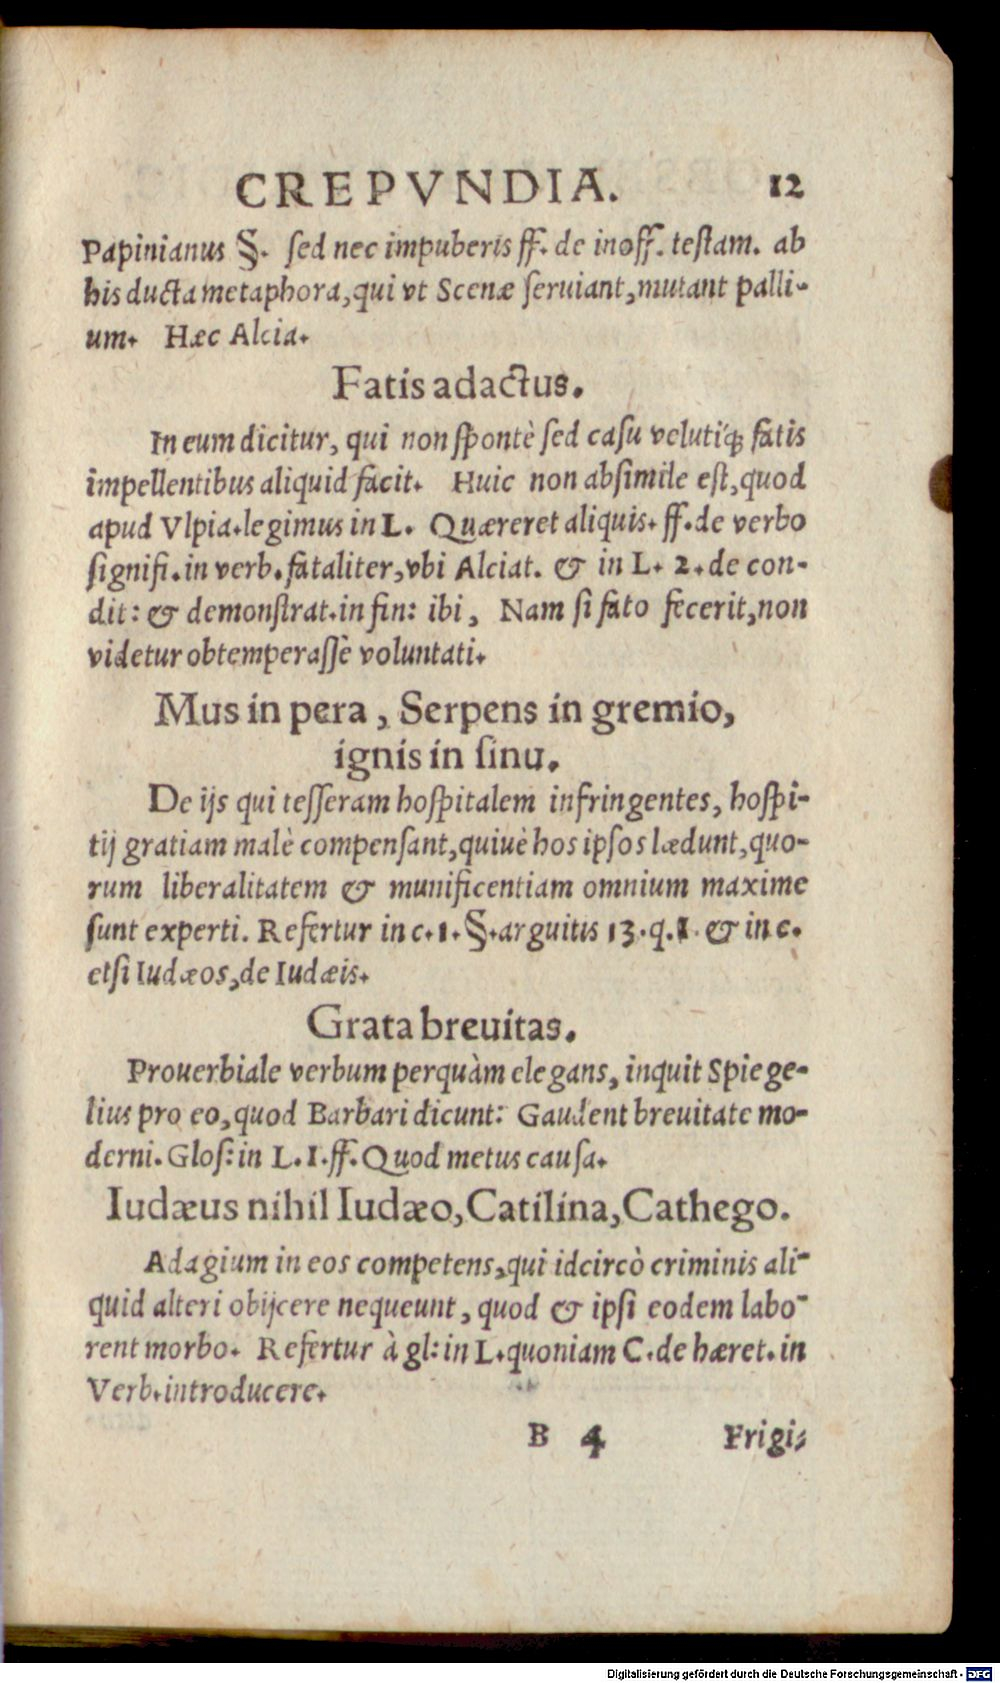 CREPVNDIA. 12
Papinianus §. sed nec impuberis ff. de inoff. testam. ab
his ducta metaphora, qui vt Scenæ seruiant, mutant palli-
um. Hæc Alcia.
Fatis adactus.
In eum dicitur, qui non spontè sed casu velutíq; fatis
impellentibus aliquid facit. Huic non absimile est, quod
apud Vlpia. legimus in L. Quæreret aliquis. ff. de verbo
signifi. in verb. fataliter, vbi Alciat. & in L. 2. de con-
dit: & demonstrat. in fin: ibi, Nam si fato fecerit, non
videtur obtemperassè voluntati.
Mus in pera, Serpens in gremio,
ignis in sinu.
De ijs qui tesseram hospitalem infringentes, hospi-
tij gratiam malè compensant, quiuè hos ipsos lædunt, quo-
rum liberalitatem & munificentiam omnium maxime
sunt experti. Refertur in c. 1. §. arguitis 13. q. 1. & in c.
etsi Iudæos, de Iudæis.
Grata breuitas.
Prouerbiale verbum perquàm elegans, inquit Spiege-
lius pro eo, quod Barbari dicunt: Gaudent breuitate mo-
derni. Glos: in L. I. ff. Quod metus causa.
Iudæus nihil Iudæo, Catilina, Cathego.
Adagium in eos competens, qui idcircò criminis ali-
quid alteri obijcere nequeunt, quod & ipsi eodem labo-
rent morbo. Refertur à gl: in L. quoniam C. de hæret. in
Verb. introducere.
B 4 Frigi-
Digitalisierung gefördert durch die Deutsche Forschungsgemeinschaft - DFG